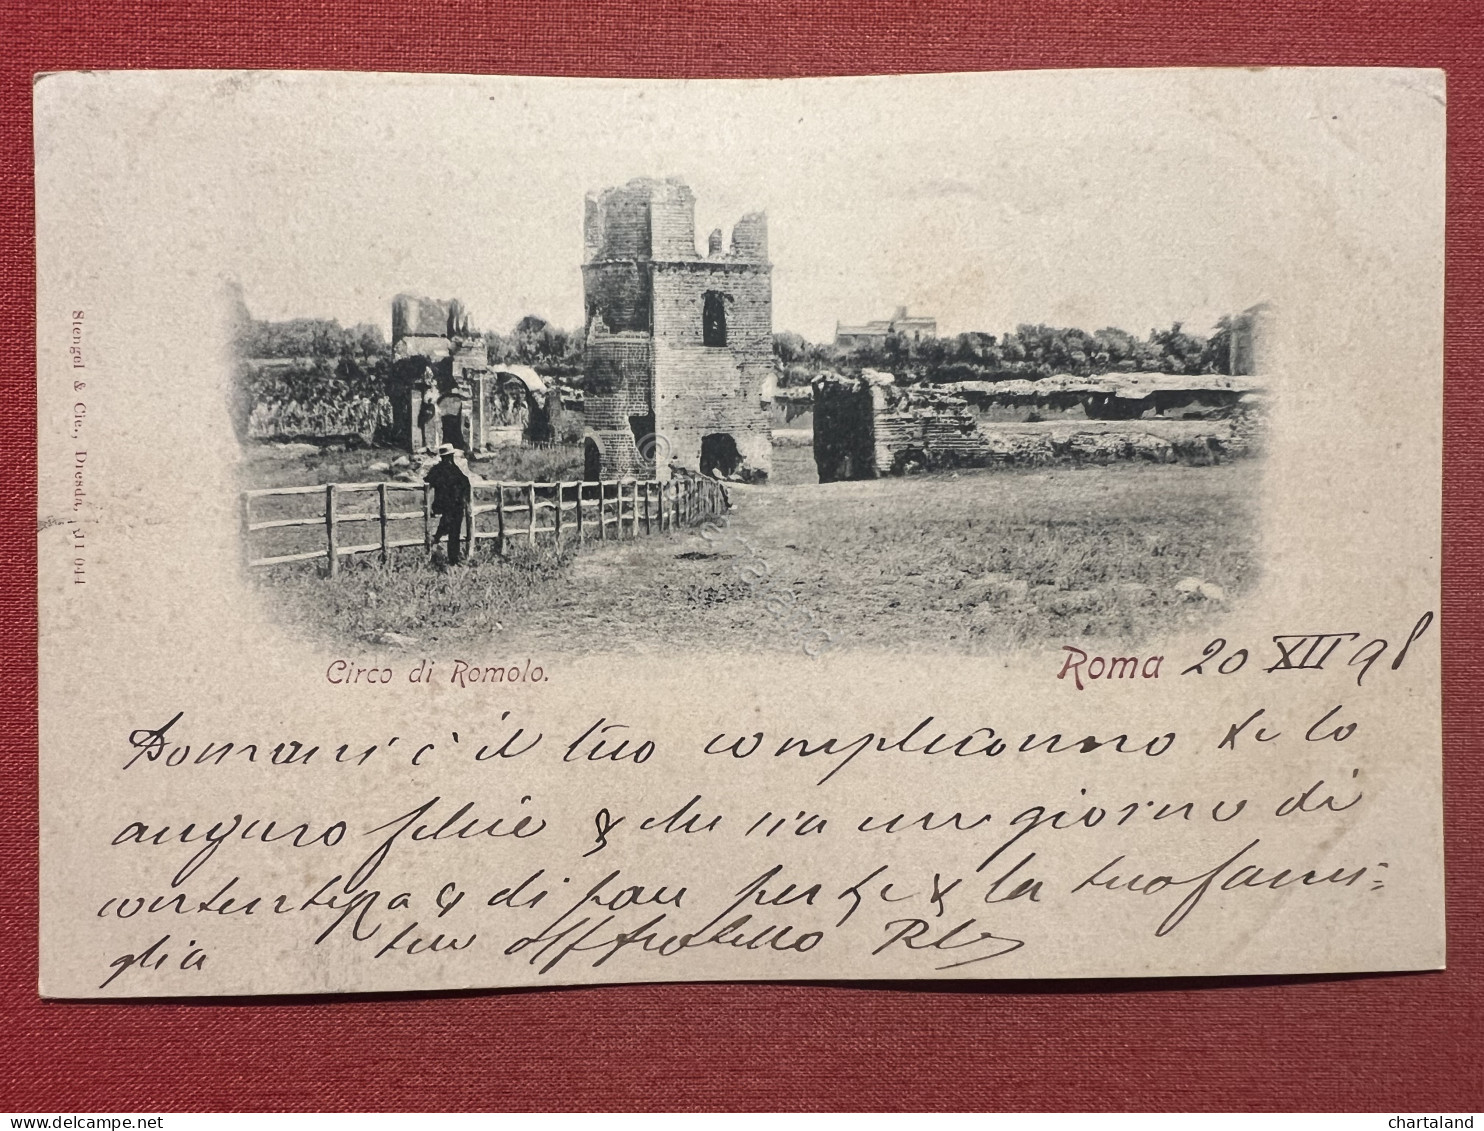 Stengel & Cie., Dresda, 11 044
Circo di Romolo.
Roma 20 XII 98
Domani è il tuo complicanno te lo
auguro felice & che sia un giorno di
contentezza & di pace per te & la tua fami=
glia tuo aff fratello
chartaland